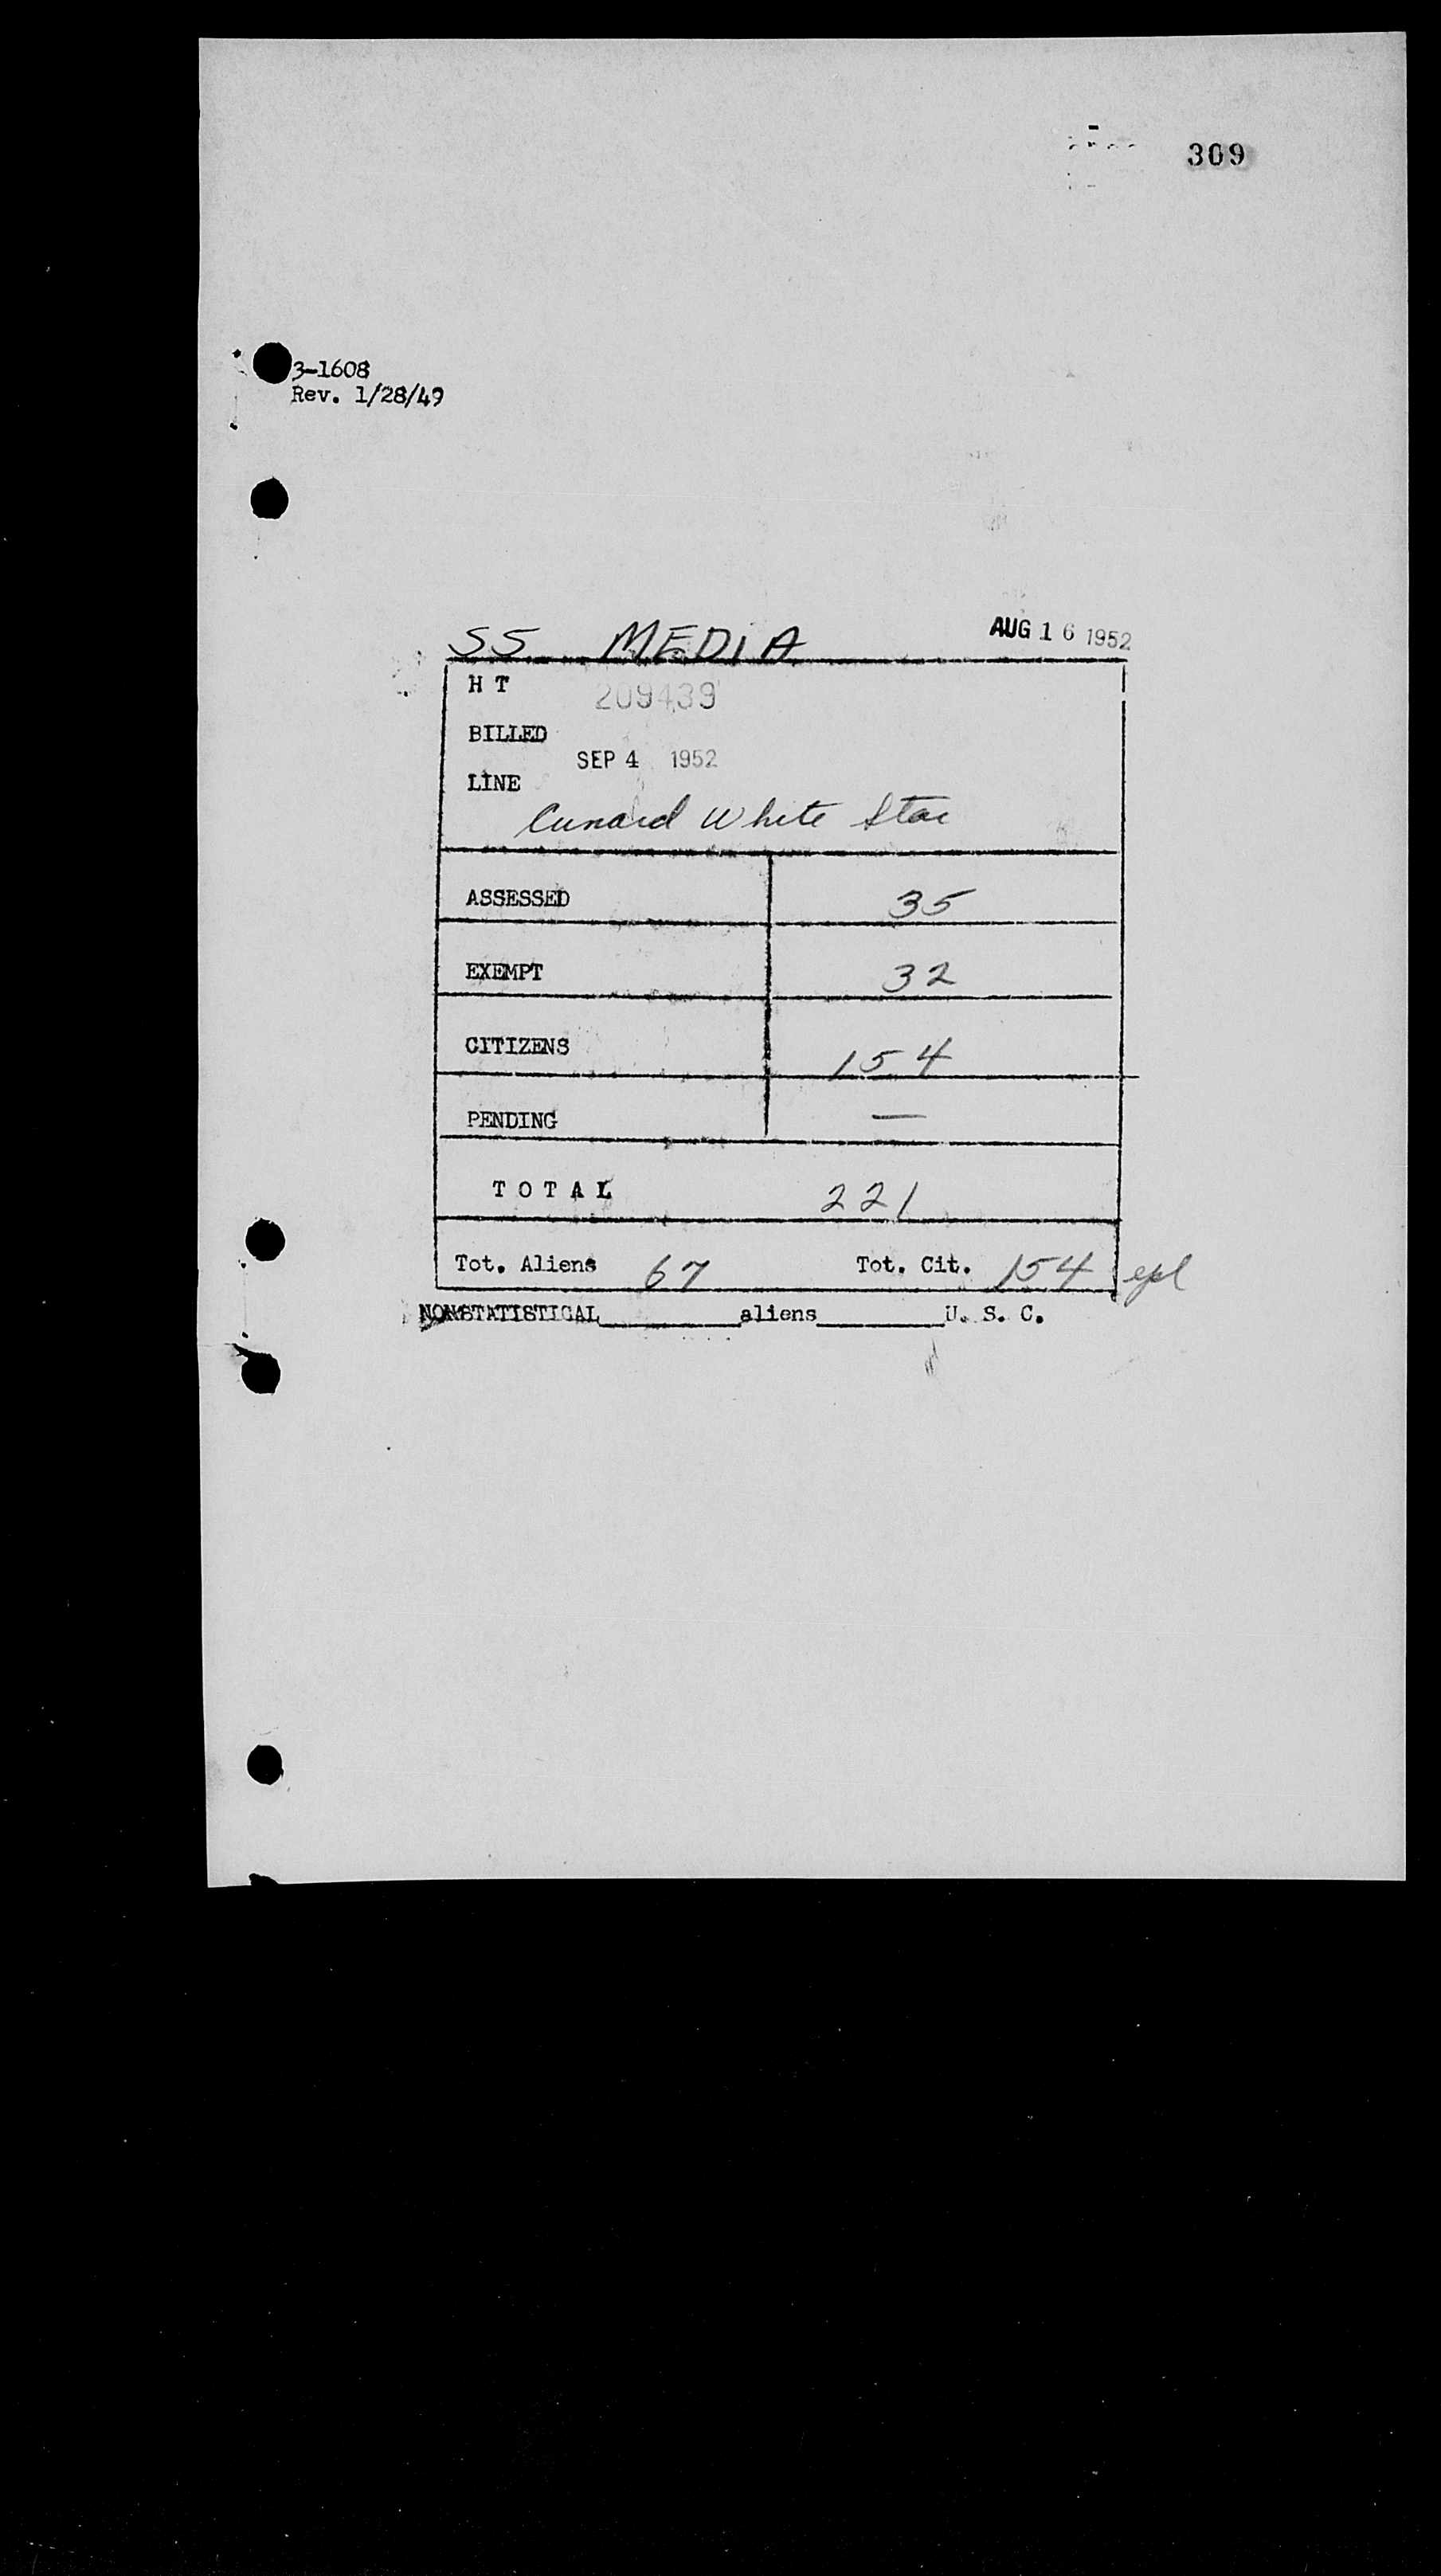 309
3-1608
Rev. 1/28/49
SS MEDIA AUG 16 1952
H T 209439
BILLED
SEP 4 1952
LINE
Cunard White Star
ASSESSED 35
EXEMPT 32
CITIZENS 154
PENDING —
TOTAL 221
Tot. Aliens 67 Tot. Cit. 154
NONSTATISTICAL__________aliens__________U. S. C.